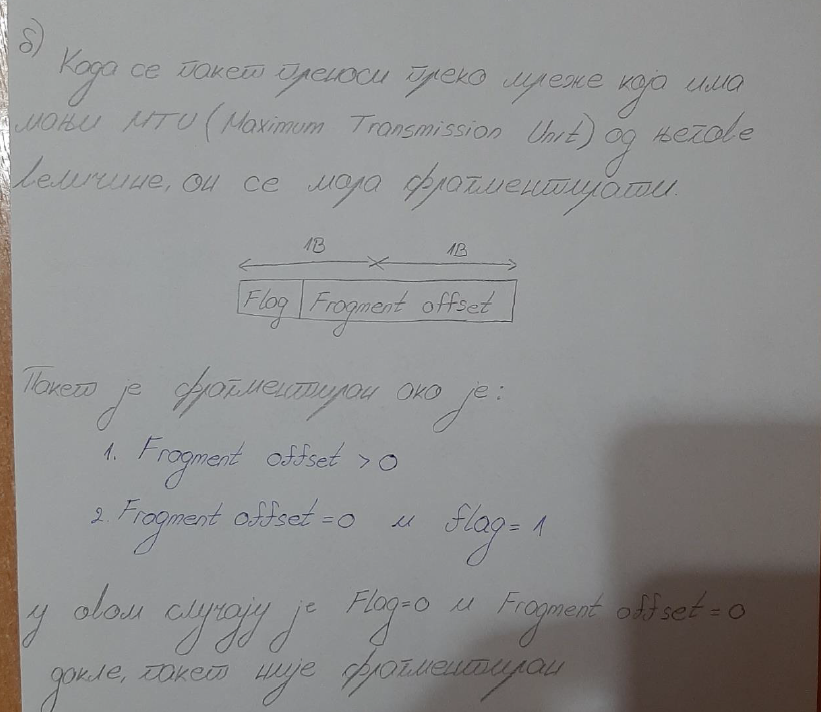 б)
Када се пакет преноси преко мреже која има
мањи MTU (Maximum Transmission Unit) од његове
величине, он се мора фрагментирати.
1B 1B
Flag Fragment offset
Пакет је фрагментиран ако је:
1. Fragment offset > 0
2. Fragment offset = 0 и flag = 1
у овом случају је Flag=0 и Fragment offset = 0
дакле, пакет није фрагментиран